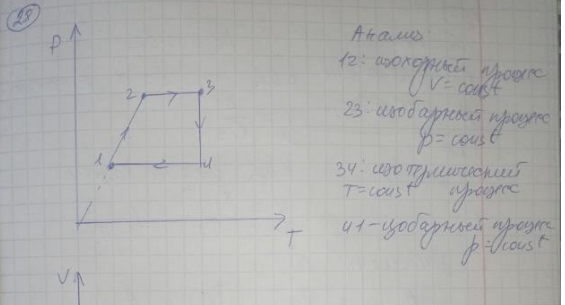 29
P
2
3
1
4
T
V
Анализ
12: изохорный процесс
V = const
23: изобарный процесс
p = const
34: изотермический
T = const процесс
41 - изобарный процесс
p = const